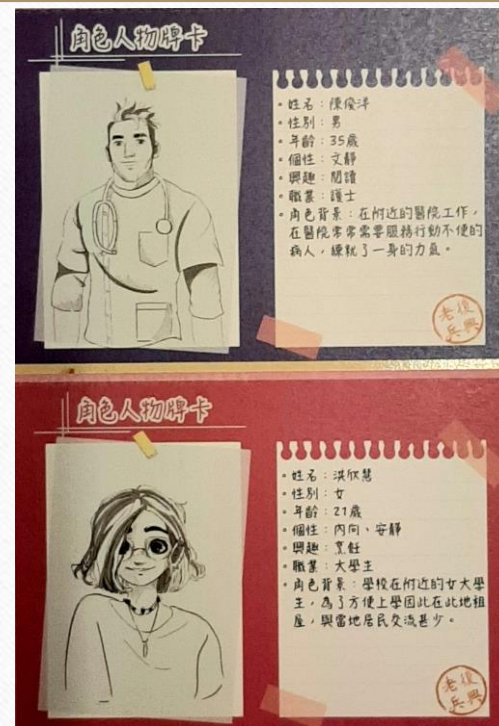 角色人物牌卡
• 姓名：陳俊洋
• 性別：男
• 年齡：35歲
• 個性：文靜
• 興趣：閱讀
• 職業：護士
• 角色背景：在附近的醫院工作，
在醫院常常需要服務行動不便的
病人，練就了一身的力氣。
老復
兵興
角色人物牌卡
• 姓名：洪欣慧
• 性別：女
• 年齡：21歲
• 個性：內向、安靜
• 興趣：烹飪
• 職業：大學生
• 角色背景：學校在附近的女大學
生，為了方便上學因此在此地租
屋，與當地居民交流甚少。
老復
兵興